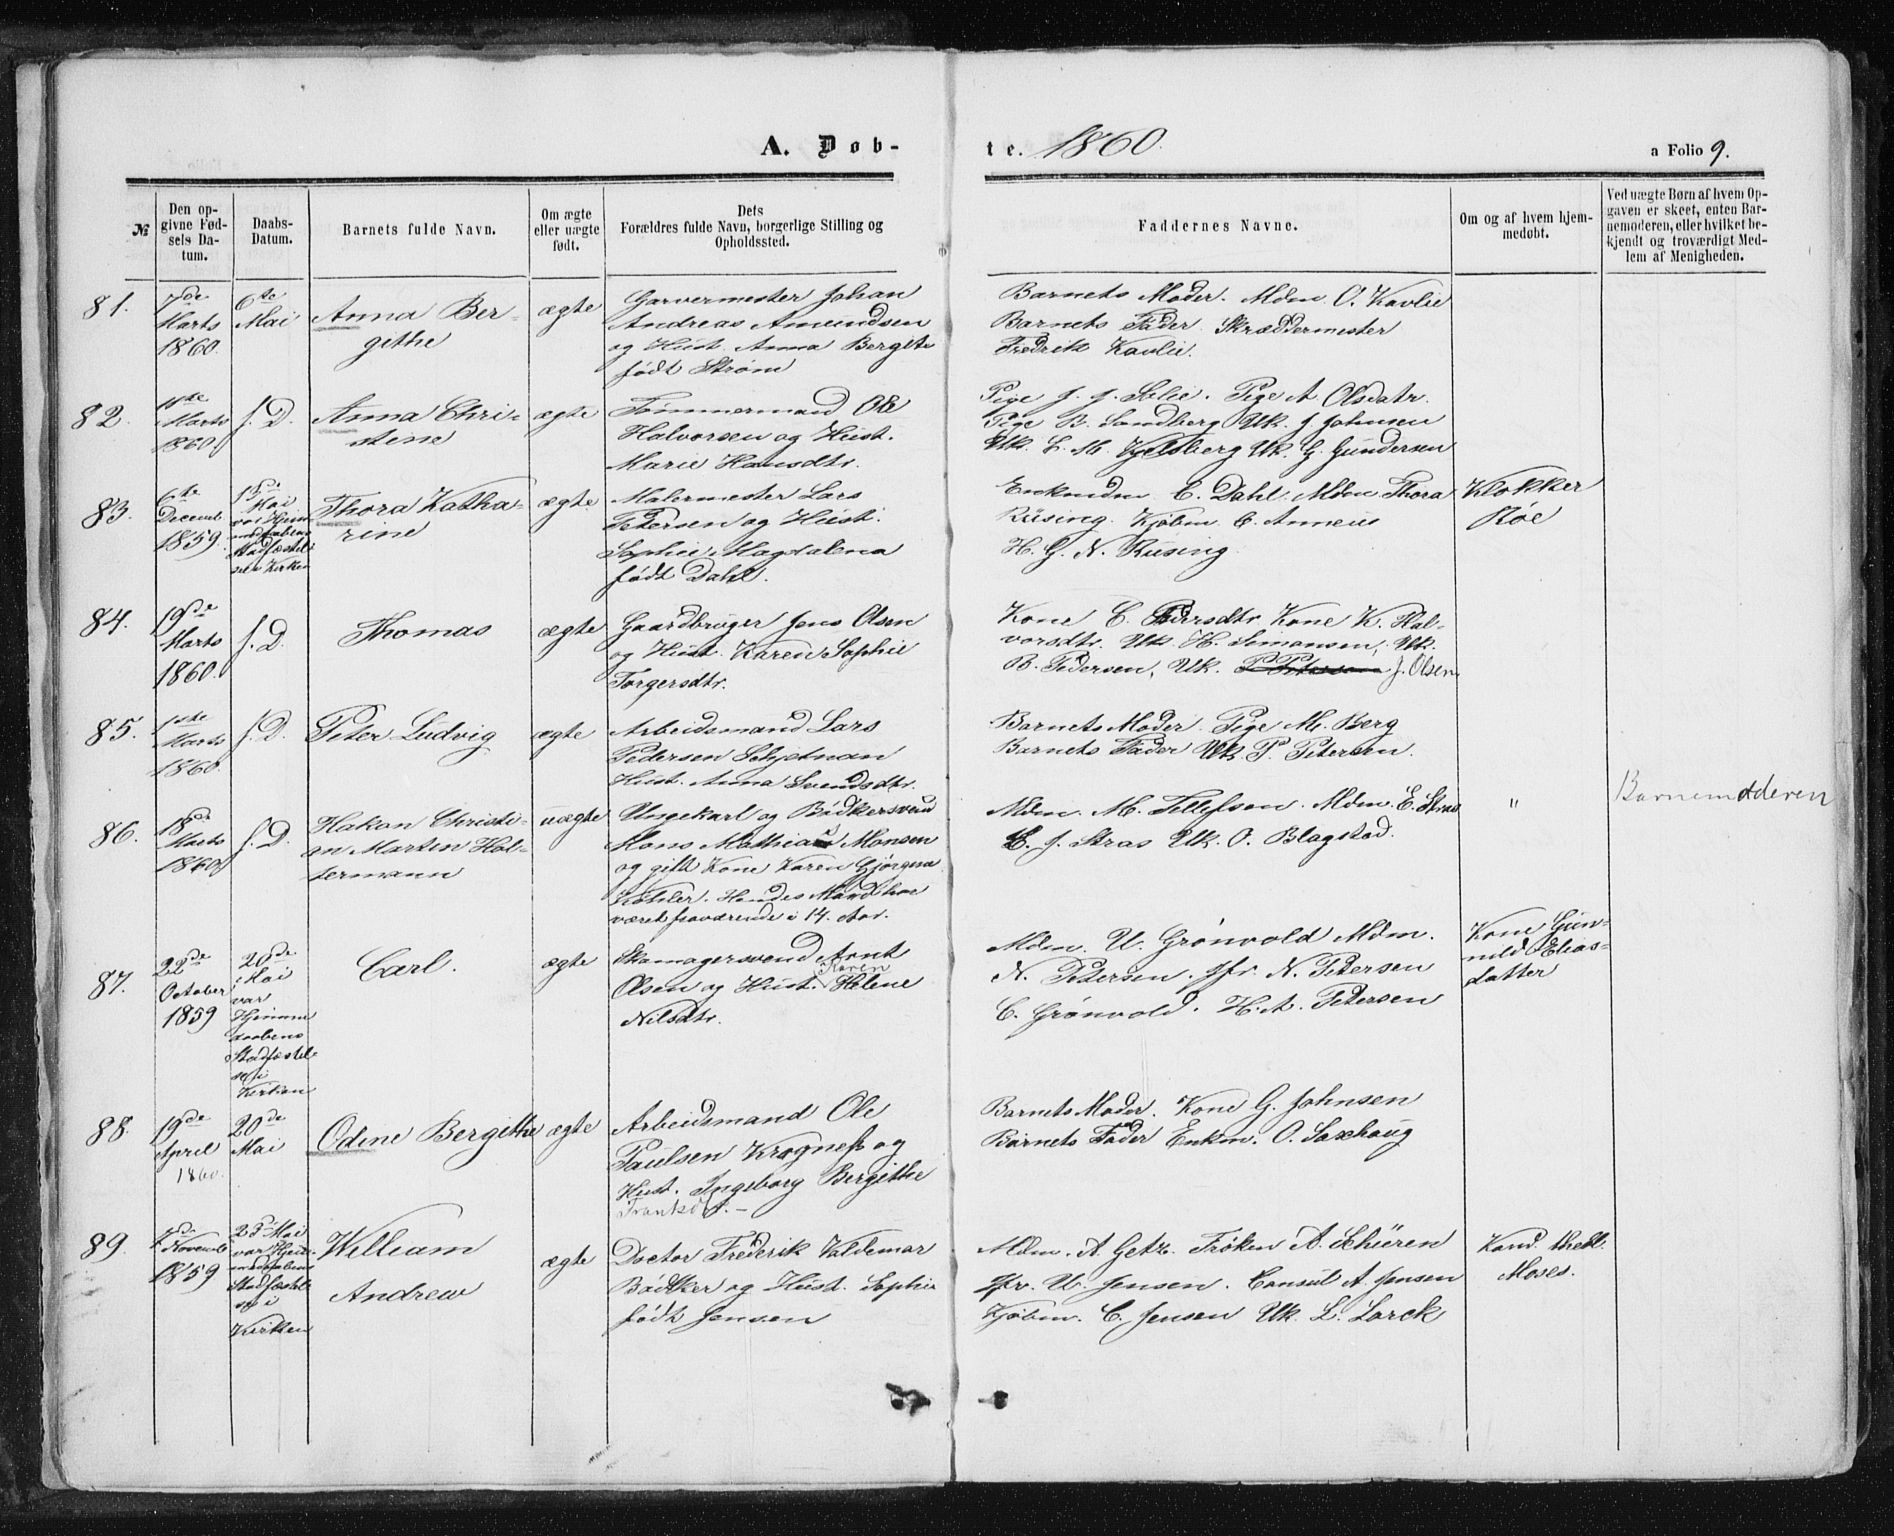 A. Døb-
te. 1860.
a Folio 9.
№
Den opgivne Fødsels Datum.
Daabs-Datum.
Barnets fulde Navn.
Om ægte eller uægte født.
Dets Forældres fulde Navn, borgerlige Stilling og Opholdssted.
Faddernes Navne.
Om og af hvem hjemmedøbt.
Ved uægte Børn af hvem Opgaven er skeet, enten Barnemoderen, eller hvilket bekjendt og troværdigt Medlem af Menigheden.
81. 7de Marts 1860. 6te Mai
Anna Ber-
githe
ægte
Garvermester Johan
Andreas Amundsen
og Hust. Anna Bergite
født Strøm
Barnets Moder. Mdm. O. Kavlie
Barnets Fader. Skræddermester
Fredrik Kavlie.
82. Marts 1860. f. D.
Anna Chri-
stine
ægte
Tømmermand Ole
Halvorsen og Hust.
Marie Hansdtr.
Pige J. J. Solie. Pige A Olsdatr.
Pige B. Sandberg Uk. J Johnsen
Uk. L. M. Kjelsberg Uk. G. Gundersen
83. 6te Decemb. 1859. 13de Mai var Hjem-
medaabens
Stadfæstel-
se i Kirken
Thora Katha-
rine
ægte
Malermester Lars
Petersen og Hust.
Sophie Magdalena
født Dahl.
Enkmdm C. Dahl. Mdm Thora
Rüsing. Kjøbm. C. Anneus
H. G. N. Rüsing.
Klokker
Røe
84. 19de Marts 1860. f. D.
Thomas
ægte
Gaardbruger Jens Olsen
og Hust. Karen Sophie
Torgersdtr.
Kone C. Pedersdtr Kone K. Hal-
vorsdtr. Uk. H. Simonsen, Uk.
B. Pedersen, Uk. P. Petersen J. Olsen
85. 1ste Marts 1860. f. D.
Peter Ludvig
ægte
Arbeidsmand Lars
Pedersen Schjetnan
Hust. Anna Svendsdtr.
Barnets Moder. Pige M. Berg
Barnets Fader Uk. P. Petersen.
86. 18de Marts 1860 f. D.
Hakon Christi-
an Martin Hol-
termann
uægte
Ungekarl og Bødkersvend
Mons Mathias Monsen
og gift Kone Karen Gjørgina
Køhler. Hendes Mand har
været fraværende i 14. Aar.
Mdm. M. Tellefsen. Mdm. E. Stras
E. J. Stras Uk. O. Blagstad.
"
Barnemoderen
87. 22de October 1859 20de Mai
var
Hjemme
daabens
Stadfæstel
se i
Kirken
Carl.
ægte
Skomagersvend Arnt
Olsen og Hust. Karen Helene
Nilsdtr.
Mdm. U. Grønvold Mdm.
N. Petersen. Jfr. N. Petersen
C. Grønvold. H. A. Petersen
Kone Gun-
nild Elias-
datter
88. 19de April 1860. 20de Mai
Odine Bergithe
ægte
Arbeidsmand Ole
Paulsen Krogness og
Hust. Ingeborg Bergithe
Frantsdtr. –
Barnets Moder. Kone G. Johnsen
Barnets Fader Enkm. O. Saxhaug
89. Novemb 1859 Mai
var Hjem-
medaabens
Stadfæstel
se i
Kirken
William
Andrew
ægte
Doctor Frederik Valdemar
Bødtker og Hust. Sophie
født Jensen
Mdm. A. Getz. Frøken A. Schüren
Jfr. U. Jensen. Consul A. Jensen
Kjøbm. C. Jensen Uk. L. Lorck
Kand. theol.
Moses.